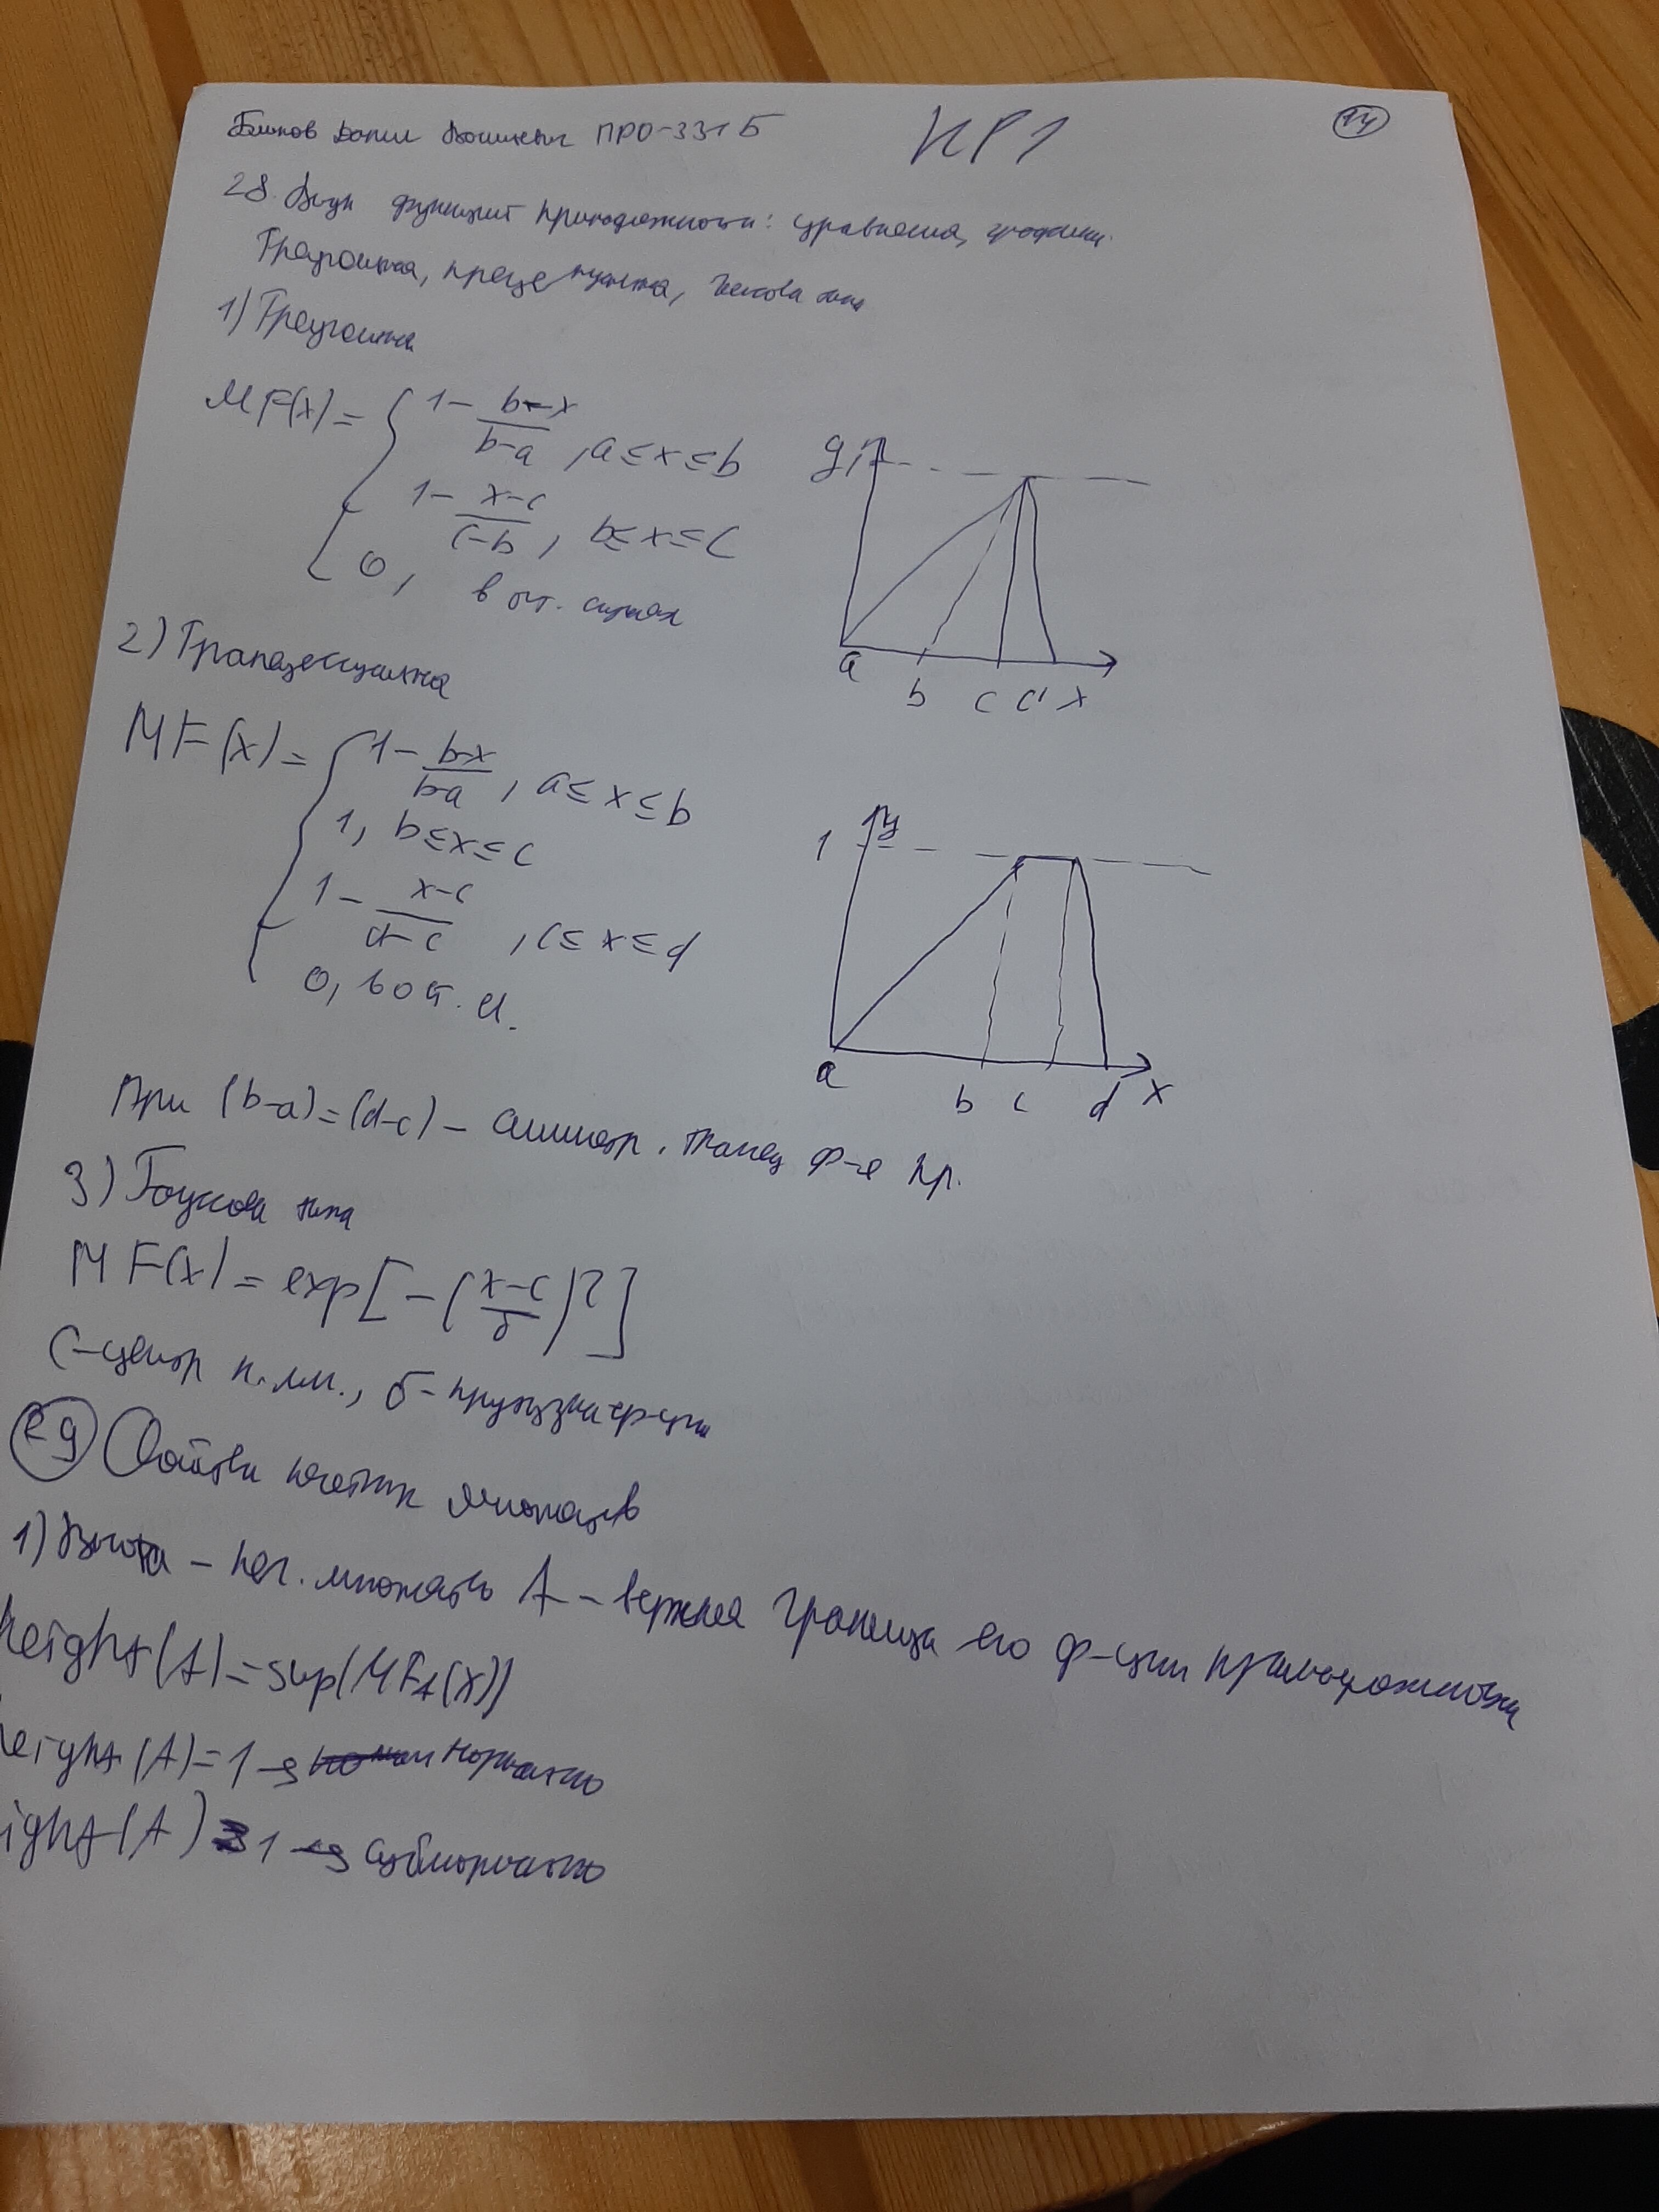 ПРО-331Б КР1 14
28. Виды функций принадлежности: уравнения, графики.
Треугольная, трапецеидальная, гауссова
1) Треугольная
MF(x) = { 1 - (b-x)/(b-a), a ≤ x ≤ b
1 - (x-c)/(c-b), b ≤ x ≤ c
0, в ост. случаях
y 1
a b c d x
2) Трапецеидальна
MF(x) = { 1 - (b-x)/(b-a), a ≤ x ≤ b
1, b ≤ x ≤ c
1 - (x-c)/(d-c), c ≤ x ≤ d
0, в ост. сл.
1 y
a b c d x
При (b-a) = (d-c) - симметр. трапец ф-я пр.
3) Гауссова типа
MF(x) = exp[-((x-c)/σ)²]
c - центр н. мн., σ - крутизна ф-ции
29 Свойства нечетких множеств
1) Высота - неч. множества A - верхняя граница его ф-ции принадлежности
height(A) = sup(MF_A(x))
height(A) = 1 → нормально
ight(A) 1 → субнормально